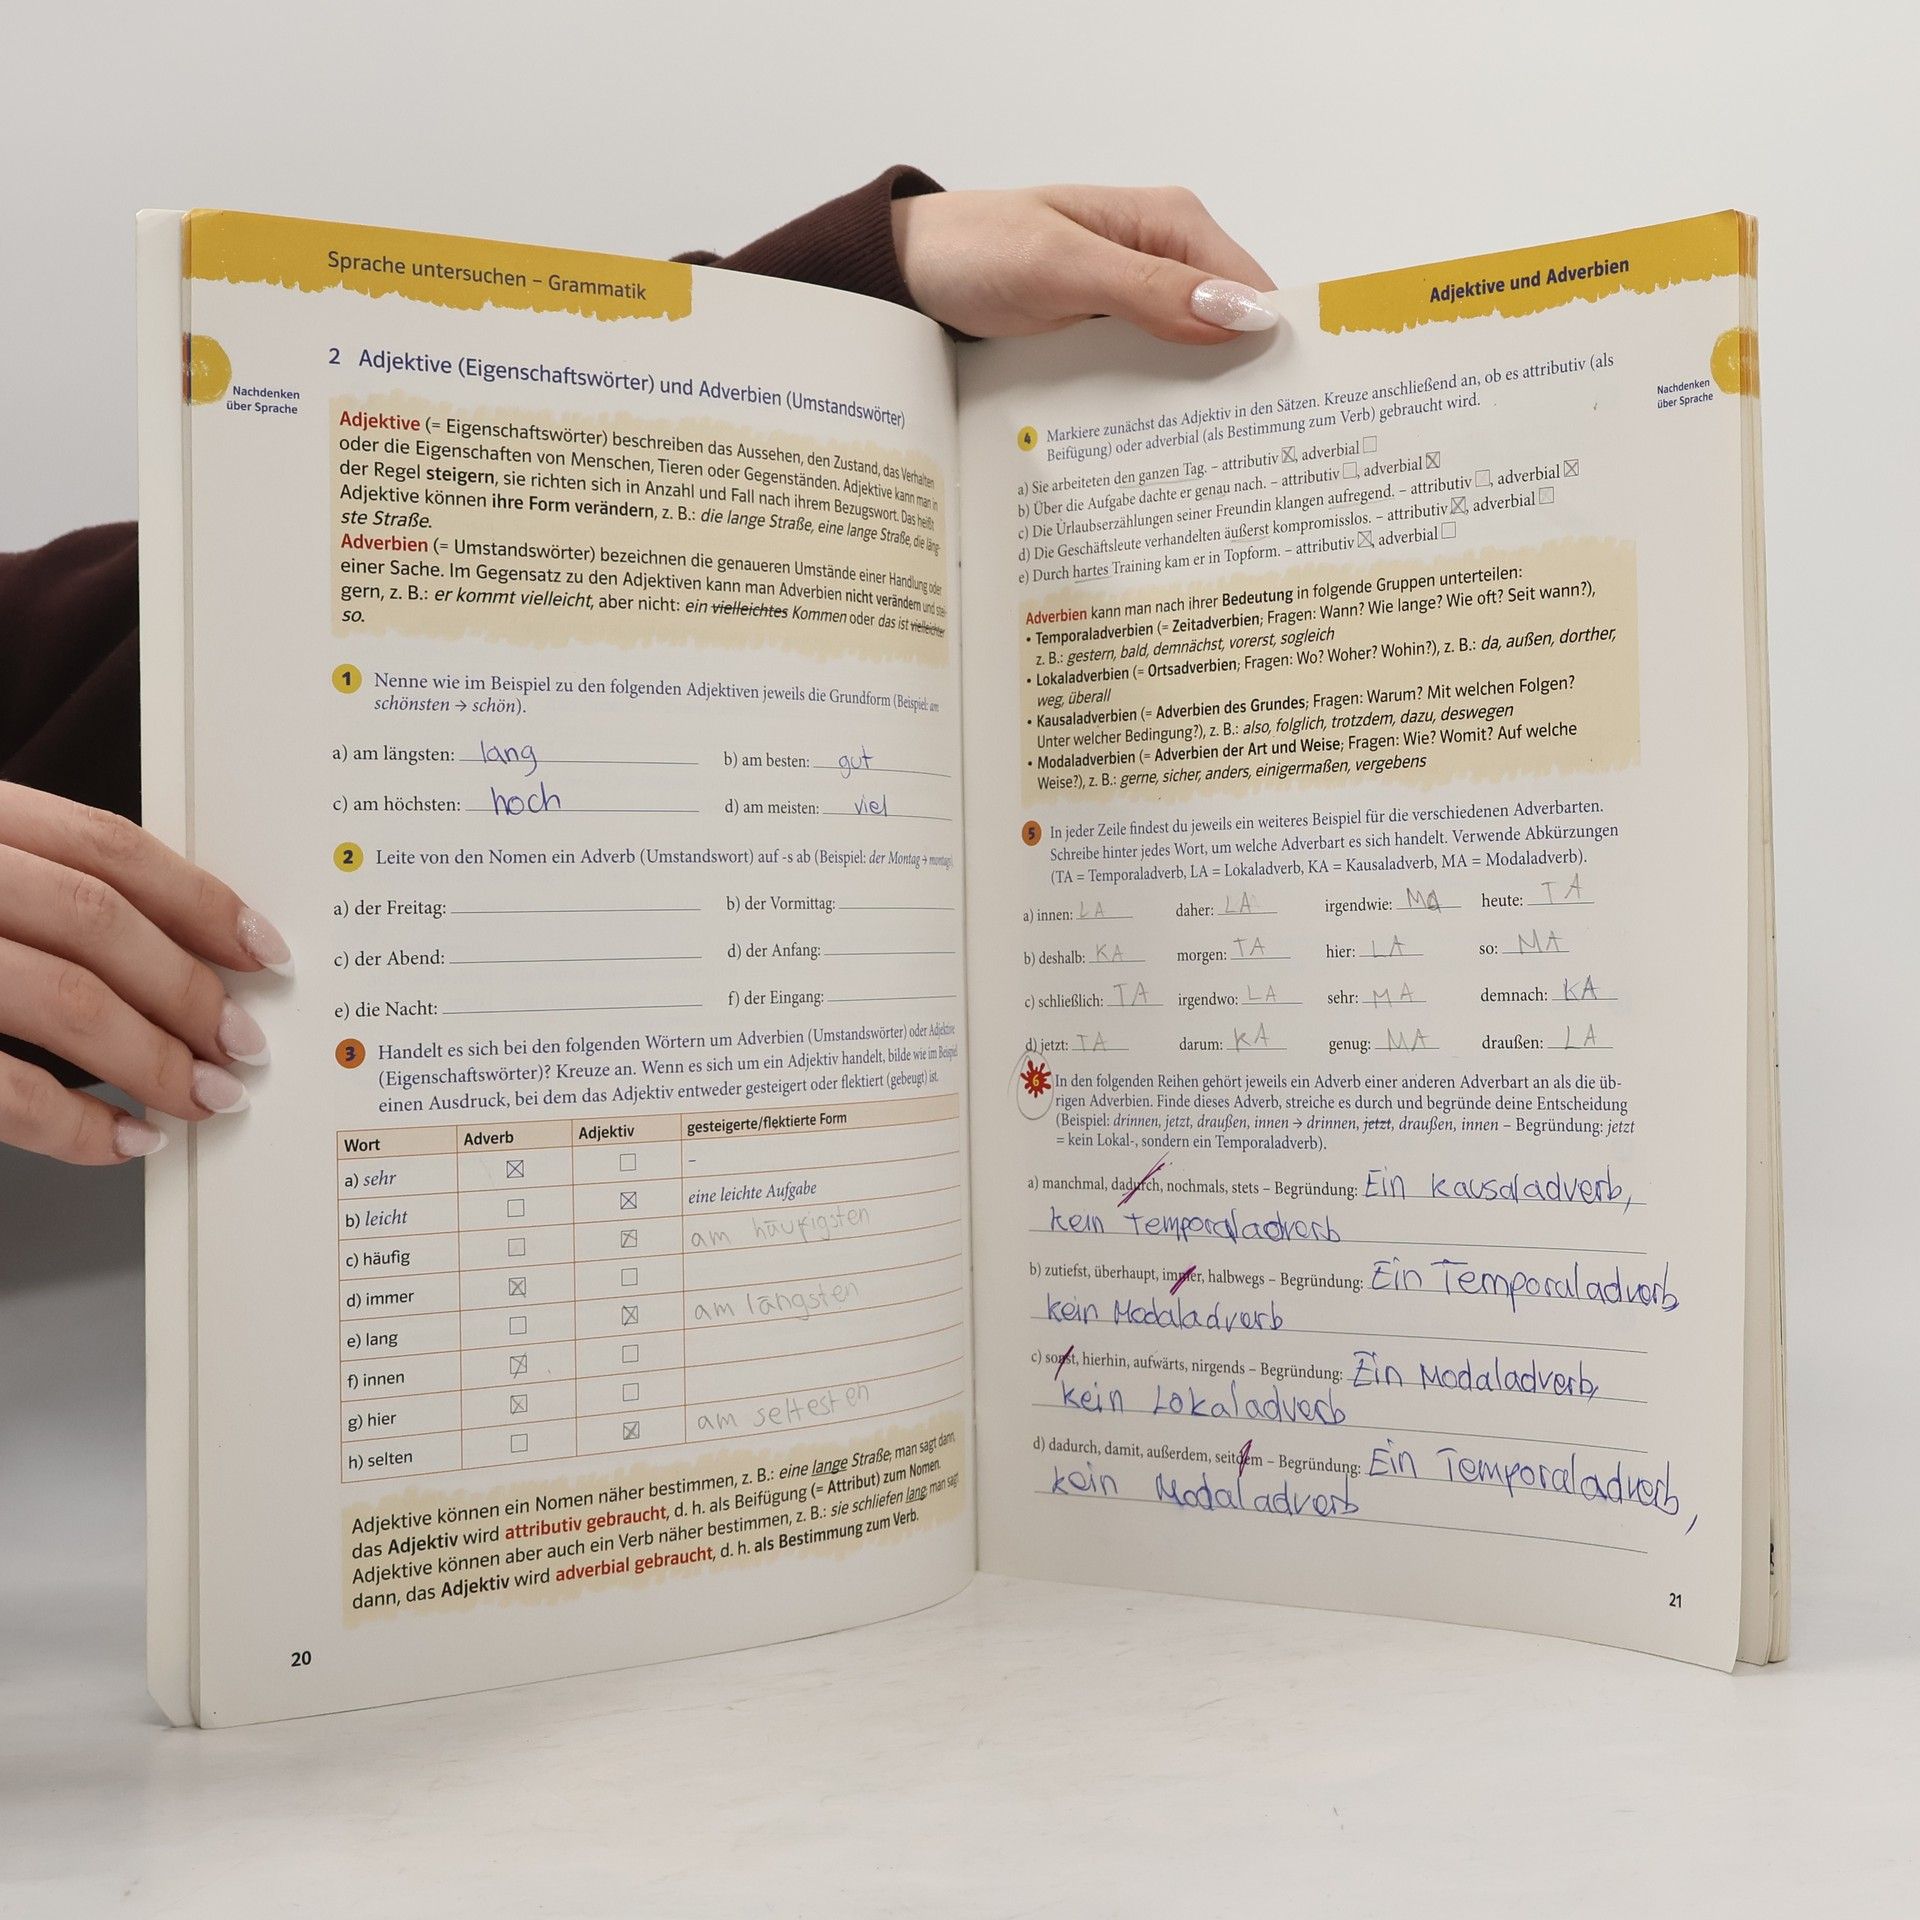 Sprache untersuchen – Grammatik
Nachdenken
über Sprache
2 Adjektive (Eigenschaftswörter) und Adverbien (Umstandswörter)
Adjektive (= Eigenschaftswörter) beschreiben das Aussehen, den Zustand, das Verhalten
oder die Eigenschaften von Menschen, Tieren oder Gegenständen. Adjektive kann man in
der Regel steigern, sie richten sich in Anzahl und Fall nach ihrem Bezugswort. Das heißt
Adjektive können ihre Form verändern, z. B.: die lange Straße, eine lange Straße, die läng-
ste Straße.
Adverbien (= Umstandswörter) bezeichnen die genaueren Umstände einer Handlung oder
einer Sache. Im Gegensatz zu den Adjektiven kann man Adverbien nicht verändern und stei-
gern, z. B.: er kommt vielleicht, aber nicht: ein vielleichtes Kommen oder das ist vielleichter
so.
1 Nenne wie im Beispiel zu den folgenden Adjektiven jeweils die Grundform (Beispiel: am
schönsten → schön).
a) am längsten: lang b) am besten: gut
c) am höchsten: hoch d) am meisten: viel
2 Leite von den Nomen ein Adverb (Umstandswort) auf -s ab (Beispiel: der Montag → montags).
a) der Freitag: b) der Vormittag:
c) der Abend: d) der Anfang:
e) die Nacht: f) der Eingang:
3 Handelt es sich bei den folgenden Wörtern um Adverbien (Umstandswörter) oder Adjektive
(Eigenschaftswörter)? Kreuze an. Wenn es sich um ein Adjektiv handelt, bilde wie im Beispiel
einen Ausdruck, bei dem das Adjektiv entweder gesteigert oder flektiert (gebeugt) ist.
Wort Adverb Adjektiv gesteigerte/flektierte Form
a) sehr ☒ ☐ –
b) leicht ☐ ☒ eine leichte Aufgabe
c) häufig ☐ ☒ am häufigsten
d) immer ☒ ☐
e) lang ☐ ☒ am längsten
f) innen ☒ ☐
g) hier ☒ ☐
h) selten ☐ ☒ am seltesten
Adjektive können ein Nomen näher bestimmen, z. B.: eine lange Straße; man sagt dann,
das Adjektiv wird attributiv gebraucht, d. h. als Beifügung (= Attribut) zum Nomen.
Adjektive können aber auch ein Verb näher bestimmen, z. B.: sie schliefen lang; man sagt
dann, das Adjektiv wird adverbial gebraucht, d. h. als Bestimmung zum Verb.
20
Adjektive und Adverbien
Nachdenken
über Sprache
4 Markiere zunächst das Adjektiv in den Sätzen. Kreuze anschließend an, ob es attributiv (als
Beifügung) oder adverbial (als Bestimmung zum Verb) gebraucht wird.
a) Sie arbeiteten den ganzen Tag. – attributiv ☒, adverbial ☐
b) Über die Aufgabe dachte er genau nach. – attributiv ☐, adverbial ☒
c) Die Urlaubserzählungen seiner Freundin klangen aufregend. – attributiv ☐, adverbial ☒
d) Die Geschäftsleute verhandelten äußerst kompromisslos. – attributiv ☒, adverbial ☐
e) Durch hartes Training kam er in Topform. – attributiv ☒, adverbial ☐
Adverbien kann man nach ihrer Bedeutung in folgende Gruppen unterteilen:
• Temporaladverbien (= Zeitadverbien; Fragen: Wann? Wie lange? Wie oft? Seit wann?),
z. B.: gestern, bald, demnächst, vorerst, sogleich
• Lokaladverbien (= Ortsadverbien; Fragen: Wo? Woher? Wohin?), z. B.: da, außen, dorther,
weg, überall
• Kausaladverbien (= Adverbien des Grundes; Fragen: Warum? Mit welchen Folgen?
Unter welcher Bedingung?), z. B.: also, folglich, trotzdem, dazu, deswegen
• Modaladverbien (= Adverbien der Art und Weise; Fragen: Wie? Womit? Auf welche
Weise?), z. B.: gerne, sicher, anders, einigermaßen, vergebens
5 In jeder Zeile findest du jeweils ein weiteres Beispiel für die verschiedenen Adverbarten.
Schreibe hinter jedes Wort, um welche Adverbart es sich handelt. Verwende Abkürzungen
(TA = Temporaladverb, LA = Lokaladverb, KA = Kausaladverb, MA = Modaladverb).
a) innen: LA daher: LA irgendwie: MA heute: TA
b) deshalb: KA morgen: TA hier: LA so: MA
c) schließlich: TA irgendwo: LA sehr: MA demnach: KA
d) jetzt: TA darum: KA genug: MA draußen: LA
6 In den folgenden Reihen gehört jeweils ein Adverb einer anderen Adverbart an als die üb-
rigen Adverbien. Finde dieses Adverb, streiche es durch und begründe deine Entscheidung
(Beispiel: drinnen, jetzt, draußen, innen → drinnen, jetzt, draußen, innen – Begründung: jetzt
= kein Lokal-, sondern ein Temporaladverb).
a) manchmal, dadurch, nochmals, stets – Begründung: Ein Kausaladverb,
kein Temporaladverb
b) zutiefst, überhaupt, immer, halbwegs – Begründung: Ein Temporaladverb,
kein Modaladverb
c) sonst, hierhin, aufwärts, nirgends – Begründung: Ein Modaladverb,
kein Lokaladverb
d) dadurch, damit, außerdem, seitdem – Begründung: Ein Temporaladverb,
kein Modaladverb
21